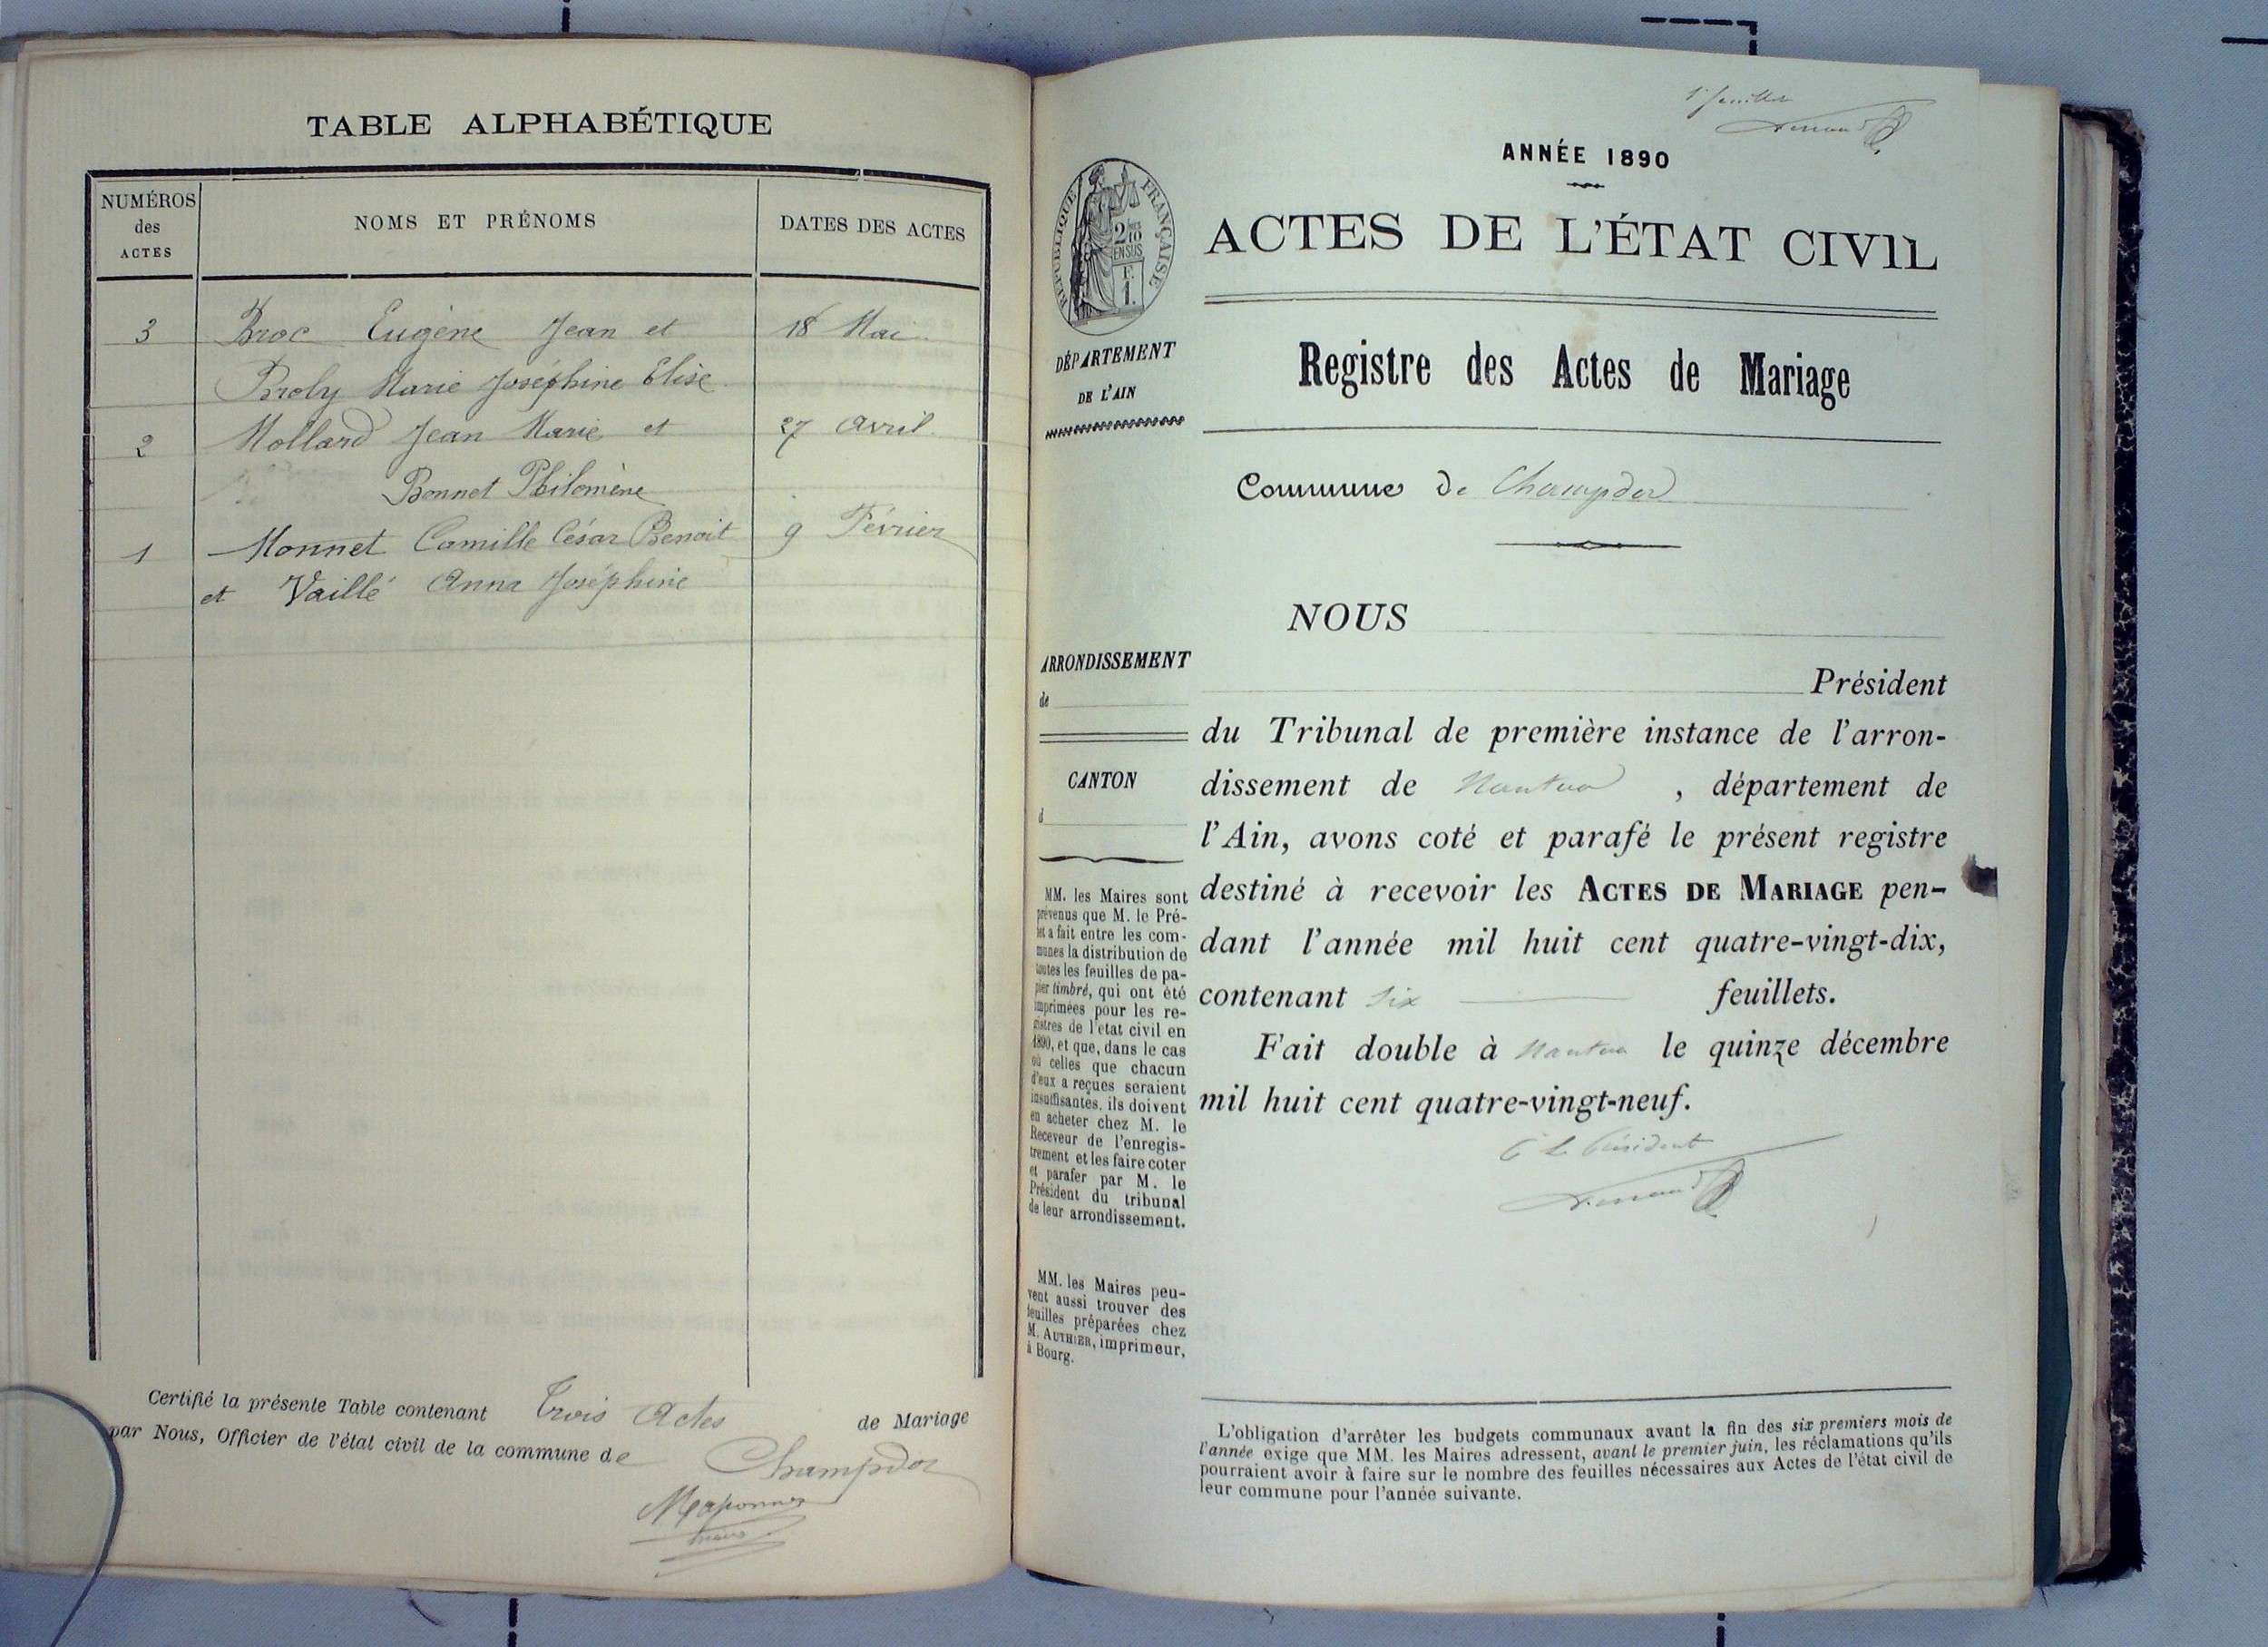 TABLE ALPHABÉTIQUE
NUMÉROS
des
ACTES
NOMS ET PRÉNOMS
DATES DES ACTES
3 Broc Eugène Jean et 18 Mai
Broly Marie Joséphine Elise
2 Mollard Jean Marie et 27 Avril
Bonnet Philomène
1 Monnet Camille César Benoit 9 Février
et Vaillé Anna Joséphine
Certifié la présente Table contenant Trois Actes de Mariage
par Nous, Officier de l'état civil de la commune de Champdor
1er feuillet
ANNÉE 1890
RÉPUBLIQUE FRANÇAISE
2/10
EN SUS
F.
1.
ACTES DE L'ÉTAT CIVIL
DÉPARTEMENT
DE L'AIN
Registre des Actes de Mariage
Commune de Champdor
NOUS
Président
du Tribunal de première instance de l'arron-
dissement de Nantua , département de
l'Ain, avons coté et parafé le présent registre
destiné à recevoir les ACTES DE MARIAGE pen-
dant l'année mil huit cent quatre-vingt-dix,
contenant six feuillets.
Fait double à Nantua le quinze décembre
mil huit cent quatre-vingt-neuf.
Le Président
ARRONDISSEMENT
de
CANTON
d
MM. les Maires sont
prévenus que M. le Pré-
fet a fait entre les com-
munes la distribution de
toutes les feuilles de pa-
pier timbré, qui ont été
imprimées pour les re-
gistres de l'état civil en
1890, et que, dans le cas
où celles que chacun
d'eux a reçues seraient
insuffisantes, ils doivent
en acheter chez M. le
Receveur de l'enregis-
trement et les faire coter
et parafer par M. le
Président du tribunal
de leur arrondissement.
MM. les Maires peu-
vent aussi trouver des
feuilles préparées chez
M. AUTHIER, imprimeur,
à Bourg.
L'obligation d'arrêter les budgets communaux avant la fin des six premiers mois de
l'année exige que MM. les Maires adressent, avant le premier juin, les réclamations qu'ils
pourraient avoir à faire sur le nombre des feuilles nécessaires aux Actes de l'état civil de
leur commune pour l'année suivante.